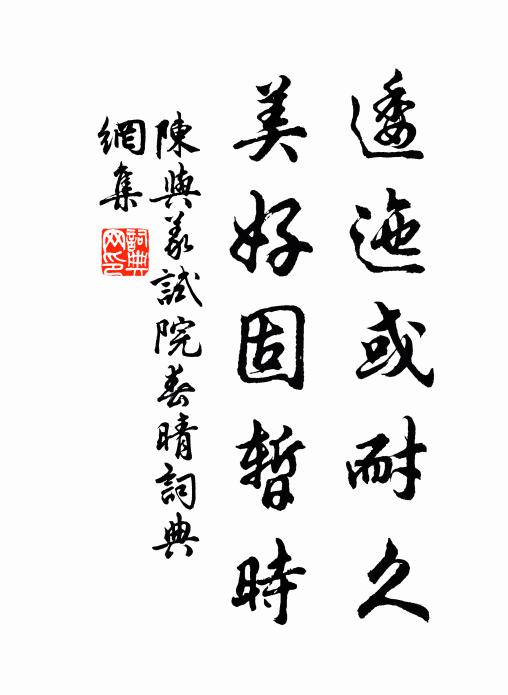 逶迤或耐久
美好固暫時
陳與義試院春晴詞典
網集
詞典
网印